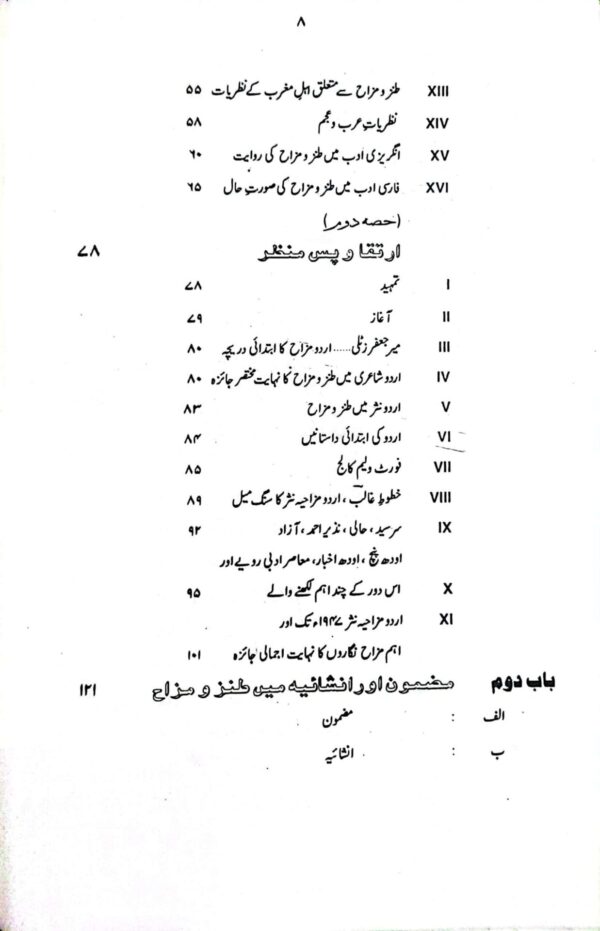 ۸
XIII طنز و مزاح سے متعلق اہلِ مغرب کے نظریات ۵۵
XIV نظریاتِ عرب و عجم ۵۸
XV انگریزی ادب میں طنز و مزاح کی روایت ۶۰
XVI فارسی ادب میں طنز و مزاح کی صورتِ حال ۶۵
(حصہ دوم)
ارتقا و پس منظر ۷۸
I تمہید ۷۸
II آغاز ۷۹
III میر جعفر زٹلی......اردو مزاح کا ابتدائی دریچہ ۸۰
IV اردو شاعری میں طنز و مزاح کا نہایت مختصر جائزہ ۸۰
V اردو نثر میں طنز و مزاح ۸۳
VI اردو کی ابتدائی داستانیں ۸۴
VII فورٹ ولیم کالج ۸۵
VIII خطوطِ غالبؔ، اردو مزاحیہ نثر کا سنگ میل ۸۹
IX سرسید، حالی، نذیر احمد، آزاد ۹۲
اودھ پنچ، اودھ اخبار، معاصر ادبی رویے اور
X اس دور کے چند اہم لکھنے والے ۹۵
XI اردو مزاحیہ نثر ۱۹۴۷ء تک اور
اہم مزاح نگاروں کا نہایت اجمالی جائزہ ۱۰۱
باب دوم مضمون اور انشائیہ میں طنز و مزاح ۱۲۱
الف : مضمون
ب : انشائیہ